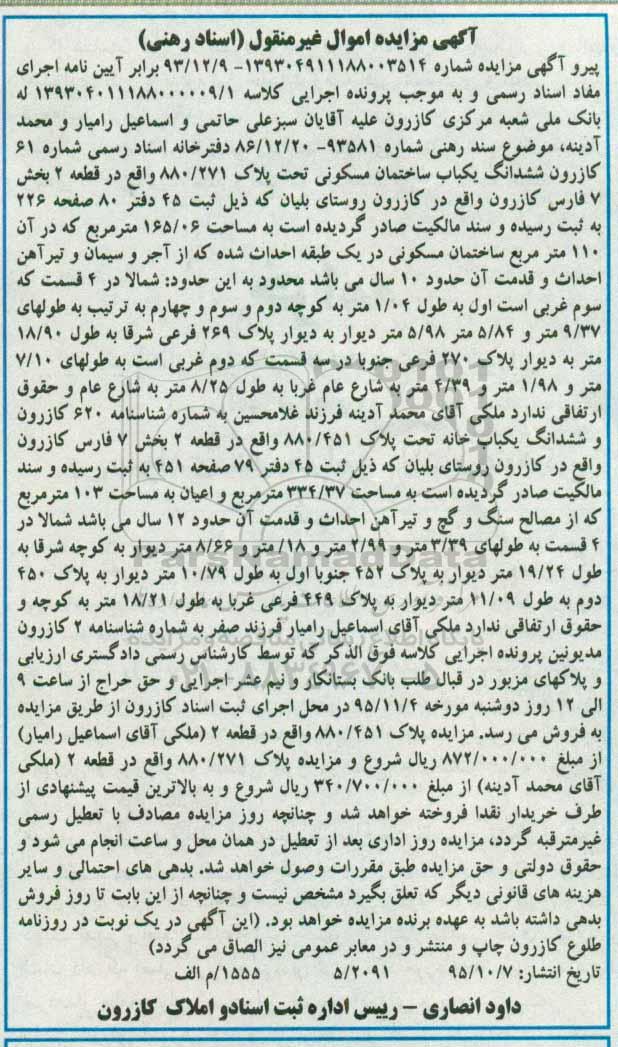 آگهی مزایده اموال غیرمنقول (اسناد رهنی)
پیرو آگهی مزایده شماره ۱۳۹۳۰۴۹۱۱۱۸۸۰۰۳۵۱۴- ۹۳/۱۲/۹ برابر آیین نامه اجرای
مفاد اسناد رسمی و به موجب پرونده اجرایی کلاسه ۱۳۹۳۰۴۰۱۱۱۸۸۰۰۰۰۰۹/۱ له
بانک ملی شعبه مرکزی کازرون علیه آقایان سبزعلی حاتمی و اسماعیل رامیار و محمد
آدینه، موضوع سند رهنی شماره ۹۳۵۸۱- ۸۶/۱۲/۲۰ دفترخانه اسناد رسمی شماره ۶۱
کازرون ششدانگ یکباب ساختمان مسکونی تحت پلاک ۸۸۰/۲۷۱ واقع در قطعه ۲ بخش
۷ فارس کازرون واقع در کازرون روستای بلیان که ذیل ثبت ۴۵ دفتر ۸۰ صفحه ۲۲۶
به ثبت رسیده و سند مالکیت صادر گردیده است به مساحت ۱۶۵/۰۶ مترمربع که در آن
۱۱۰ متر مربع ساختمان مسکونی در یک طبقه احداث شده که از آجر و سیمان و تیرآهن
احداث و قدمت آن حدود ۱۰ سال می باشد محدود به این حدود: شمالا در ۴ قسمت که
سوم غربی است اول به طول ۱/۰۴ متر به کوچه دوم و سوم و چهارم به ترتیب به طولهای
۹/۳۷ متر و ۵/۸۴ متر ۵/۹۸ متر دیوار به دیوار پلاک ۲۶۹ فرعی شرقا به طول ۱۸/۹۰
متر به دیوار پلاک ۲۷۰ فرعی جنوبا در سه قسمت که دوم غربی است به طولهای ۷/۱۰
متر و ۱/۹۸ متر و ۴/۳۹ متر به شارع عام غربا به طول ۸/۲۵ متر به شارع عام و حقوق
ارتفاقی ندارد ملکی آقای محمد آدینه فرزند غلامحسین به شماره شناسنامه ۶۲۰ کازرون
و ششدانگ یکباب خانه تحت پلاک ۸۸۰/۴۵۱ واقع در قطعه ۲ بخش ۷ فارس کازرون
واقع در کازرون روستای بلیان که ذیل ثبت ۴۵ دفتر ۷۹ صفحه ۴۵۱ به ثبت رسیده و سند
مالکیت صادر گردیده است به مساحت ۳۳۴/۳۷ مترمربع و اعیان به مساحت ۱۰۳ مترمربع
که از مصالح سنگ و گچ و تیرآهن احداث و قدمت آن حدود ۱۲ سال می باشد شمالا در
۴ قسمت به طولهای ۳/۳۹ متر و ۲/۹۹ متر و ۱۸/ متر و ۸/۶۶ متر دیوار به کوچه شرقا به
طول ۱۹/۲۴ متر دیوار به پلاک ۴۵۲ جنوبا اول به طول ۱۰/۷۹ متر دیوار به پلاک ۴۵۰
دوم به طول ۱۱/۰۹ متر دیوار به پلاک ۴۴۹ فرعی غربا به طول ۱۸/۲۱ متر به کوچه و
حقوق ارتفاقی ندارد ملکی آقای اسماعیل رامیار فرزند صفر به شماره شناسنامه ۲ کازرون
مدیونین پرونده اجرایی کلاسه فوق الذکر که توسط کارشناس رسمی دادگستری ارزیابی
و پلاکهای مزبور در قبال طلب بانک بستانکار و نیم عشر اجرایی و حق حراج از ساعت ۹
الی ۱۲ روز دوشنبه مورخه ۹۵/۱۱/۴ در محل اجرای ثبت اسناد کازرون از طریق مزایده
به فروش می رسد. مزایده پلاک ۸۸۰/۴۵۱ واقع در قطعه ۲ (ملکی آقای اسماعیل رامیار)
از مبلغ ۸۷۲/۰۰۰/۰۰۰ ریال شروع و مزایده پلاک ۸۸۰/۲۷۱ واقع در قطعه ۲ (ملکی
آقای محمد آدینه) از مبلغ ۳۴۰/۷۰۰/۰۰۰ ریال شروع و به بالاترین قیمت پیشنهادی از
طرف خریدار نقدا فروخته خواهد شد و چنانچه روز مزایده مصادف با تعطیل رسمی
غیرمترقبه گردد، مزایده روز اداری بعد از تعطیل در همان محل و ساعت انجام می شود و
حقوق دولتی و حق مزایده طبق مقررات وصول خواهد شد. بدهی های احتمالی و سایر
هزینه های قانونی دیگر که تعلق بگیرد مشخص نیست و چنانچه از این بابت تا روز فروش
بدهی داشته باشد به عهده برنده مزایده خواهد بود. (این آگهی در یک نوبت در روزنامه
طلوع کازرون چاپ و منتشر و در معابر عمومی نیز الصاق می گردد)
تاریخ انتشار: ۹۵/۱۰/۷ ۵/۲۰۹۱ ۱۵۵۵/م الف
داود انصاری – رییس اداره ثبت اسنادو املاک کازرون
ParsNamadData